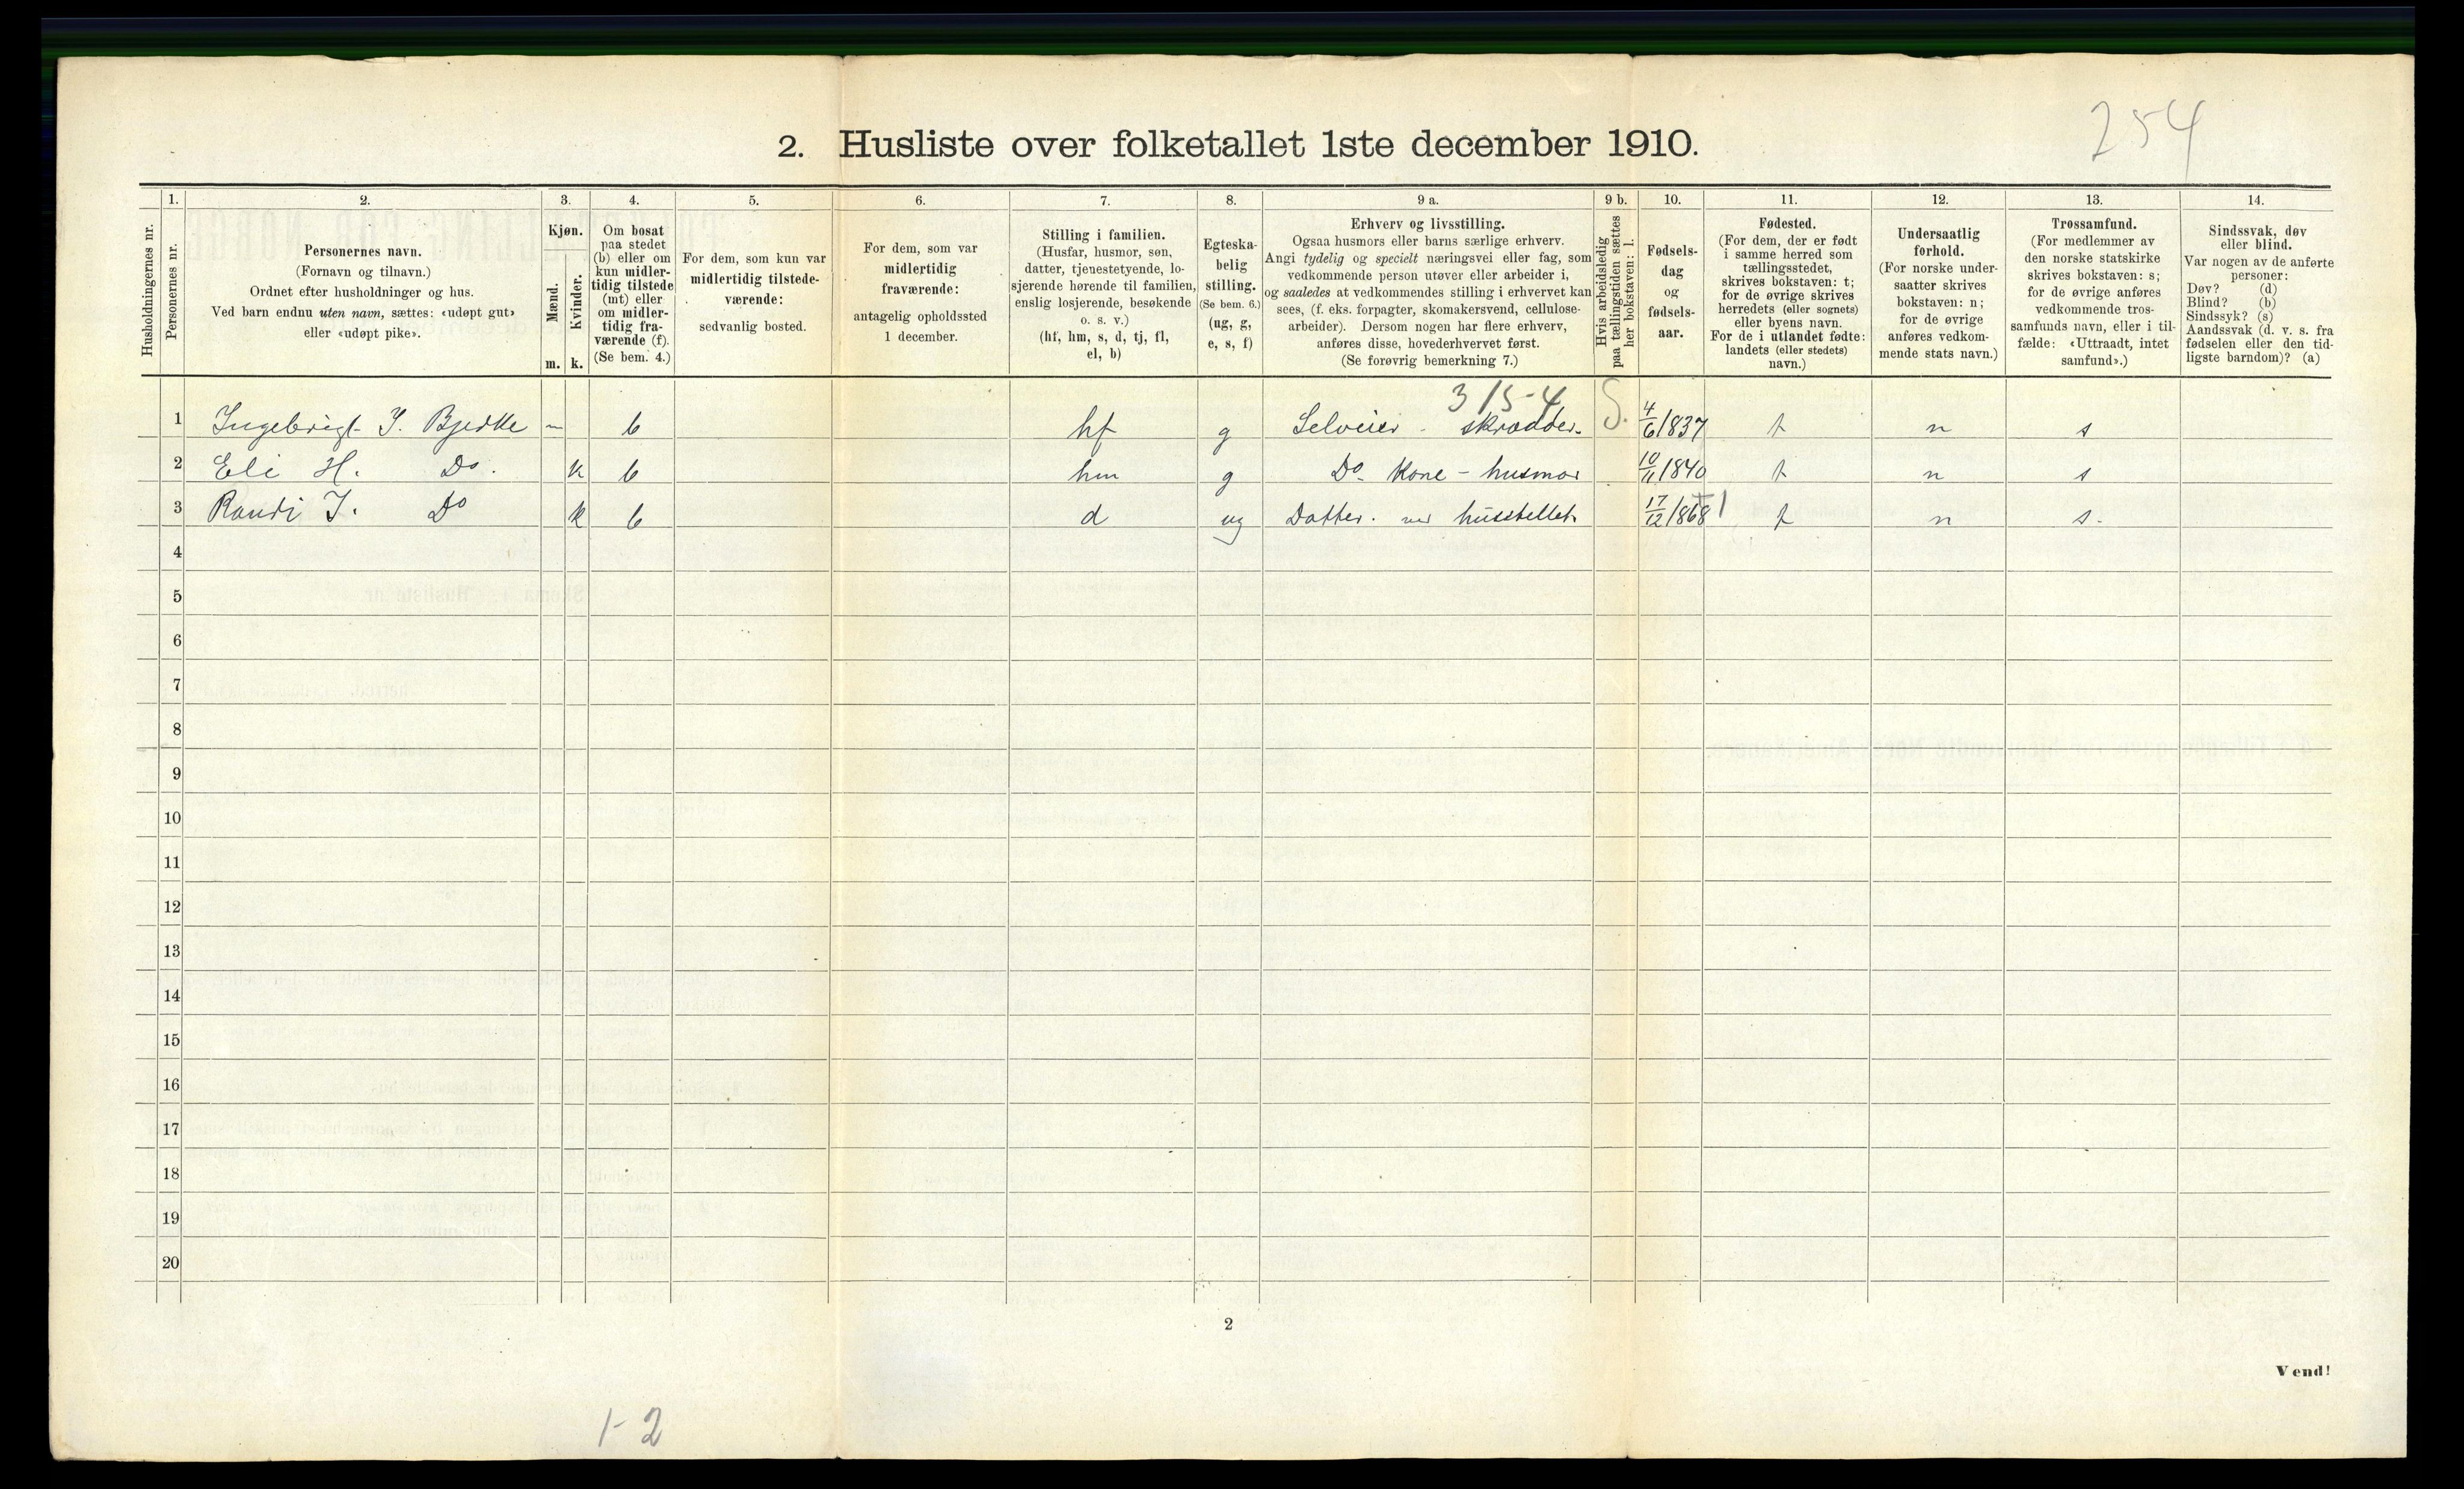 254
2. Husliste over folketallet 1ste december 1910.
Husholdningernes nr.
1.
Personernes nr.
2.
Personernes navn.
(Fornavn og tilnavn.)
Ordnet efter husholdninger og hus.
Ved barn endnu uten navn, sættes: «udøpt gut»
eller «udøpt pike».
3.
Kjøn.
Mænd.
Kvinder.
m. k.
4.
Om bosat
paa stedet
(b) eller om
kun midler-
tidig tilstede
(mt) eller
om midler-
tidig fra-
værende (f).
(Se bem. 4.)
5.
For dem, som kun var
midlertidig tilstede-
værende:
sedvanlig bosted.
6.
For dem, som var
midlertidig
fraværende:
antagelig opholdssted
1 december.
7.
Stilling i familien.
(Husfar, husmor, søn,
datter, tjenestetyende, lo-
sjerende hørende til familien,
enslig losjerende, besøkende
o. s. v.)
(hf, hm, s, d, tj, fl,
el, b)
8.
Egteska-
belig
stilling.
(Se bem. 6.)
(ug, g,
e, s, f)
9 a.
Erhverv og livsstilling.
Ogsaa husmors eller barns særlige erhverv.
Angi tydelig og specielt næringsvei eller fag, som
vedkommende person utøver eller arbeider i,
og saaledes at vedkommendes stilling i erhvervet kan
sees, (f. eks. forpagter, skomakersvend, cellulose-
arbeider). Dersom nogen har flere erhverv,
anføres disse, hovederhvervet først.
(Se forøvrig bemerkning 7.)
9 b.
Hvis arbeidsledig
paa tællingstiden sættes
her bokstaven: l.
10.
Fødsels-
dag
og
fødsels-
aar.
11.
Fødested.
(For dem, der er født
i samme herred som
tællingsstedet,
skrives bokstaven: t;
for de øvrige skrives
herredets (eller sognets)
eller byens navn.
For de i utlandet fødte:
landets (eller stedets)
navn.)
12.
Undersaatlig
forhold.
(For norske under-
saatter skrives
bokstaven: n;
for de øvrige
anføres vedkom-
mende stats navn.)
13.
Trossamfund.
(For medlemmer av
den norske statskirke
skrives bokstaven: s;
for de øvrige anføres
vedkommende tros-
samfunds navn, eller i til-
fælde: «Uttraadt, intet
samfund».)
14.
Sindssvak, døv
eller blind.
Var nogen av de anførte
personer:
Døv? (d)
Blind? (b)
Sindssyk? (s)
Aandssvak (d. v. s. fra
fødselen eller den tid-
ligste barndom)? (a)
315-4
1 Ingebrigt I. Bjerke m b hf g Selveier - skrædder. S. 4/6 1837 t n s
2 Eli H. Do. k b hm g Do. Kone - husmor 10/11 1840 t n s
3 Randi I. Do k b d ug Datter. ved husstellet. 17/12 1868 t n s.
4
5
6
7
8
9
10
11
12
13
14
15
16
17
18
19
20
2
Vend!
1-2